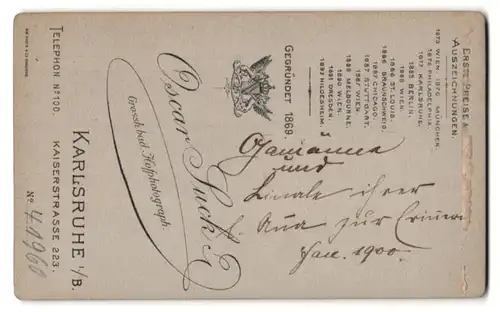 ERSTE PREISE &
AUSZEICHNUNGEN.
1873 WIEN. 1876 MÜNCHEN.
1876 PHILADELPHIA.
1877 KARLSRUHE.
1883 BERLIN.
1888 WIEN.
1866 ST. LOUIS.
1866 BRAUNSCHWEIG.
1887 CHICAGO.
1887 STUTTGART.
1887 WIEN.
1888 MELBOURNE.
1890 WIEN.
1891 DRESDEN.
1892 HILDESHEIM.
GEGRÜNDET 1869.
Oscar Suck
Grossh. bad. Hofphotograph.
KARLSRUHE i/B.
KAISERSTRASSE 223.
TELEPHON No 100.
No 41960
und
ihrer
zur
1900.